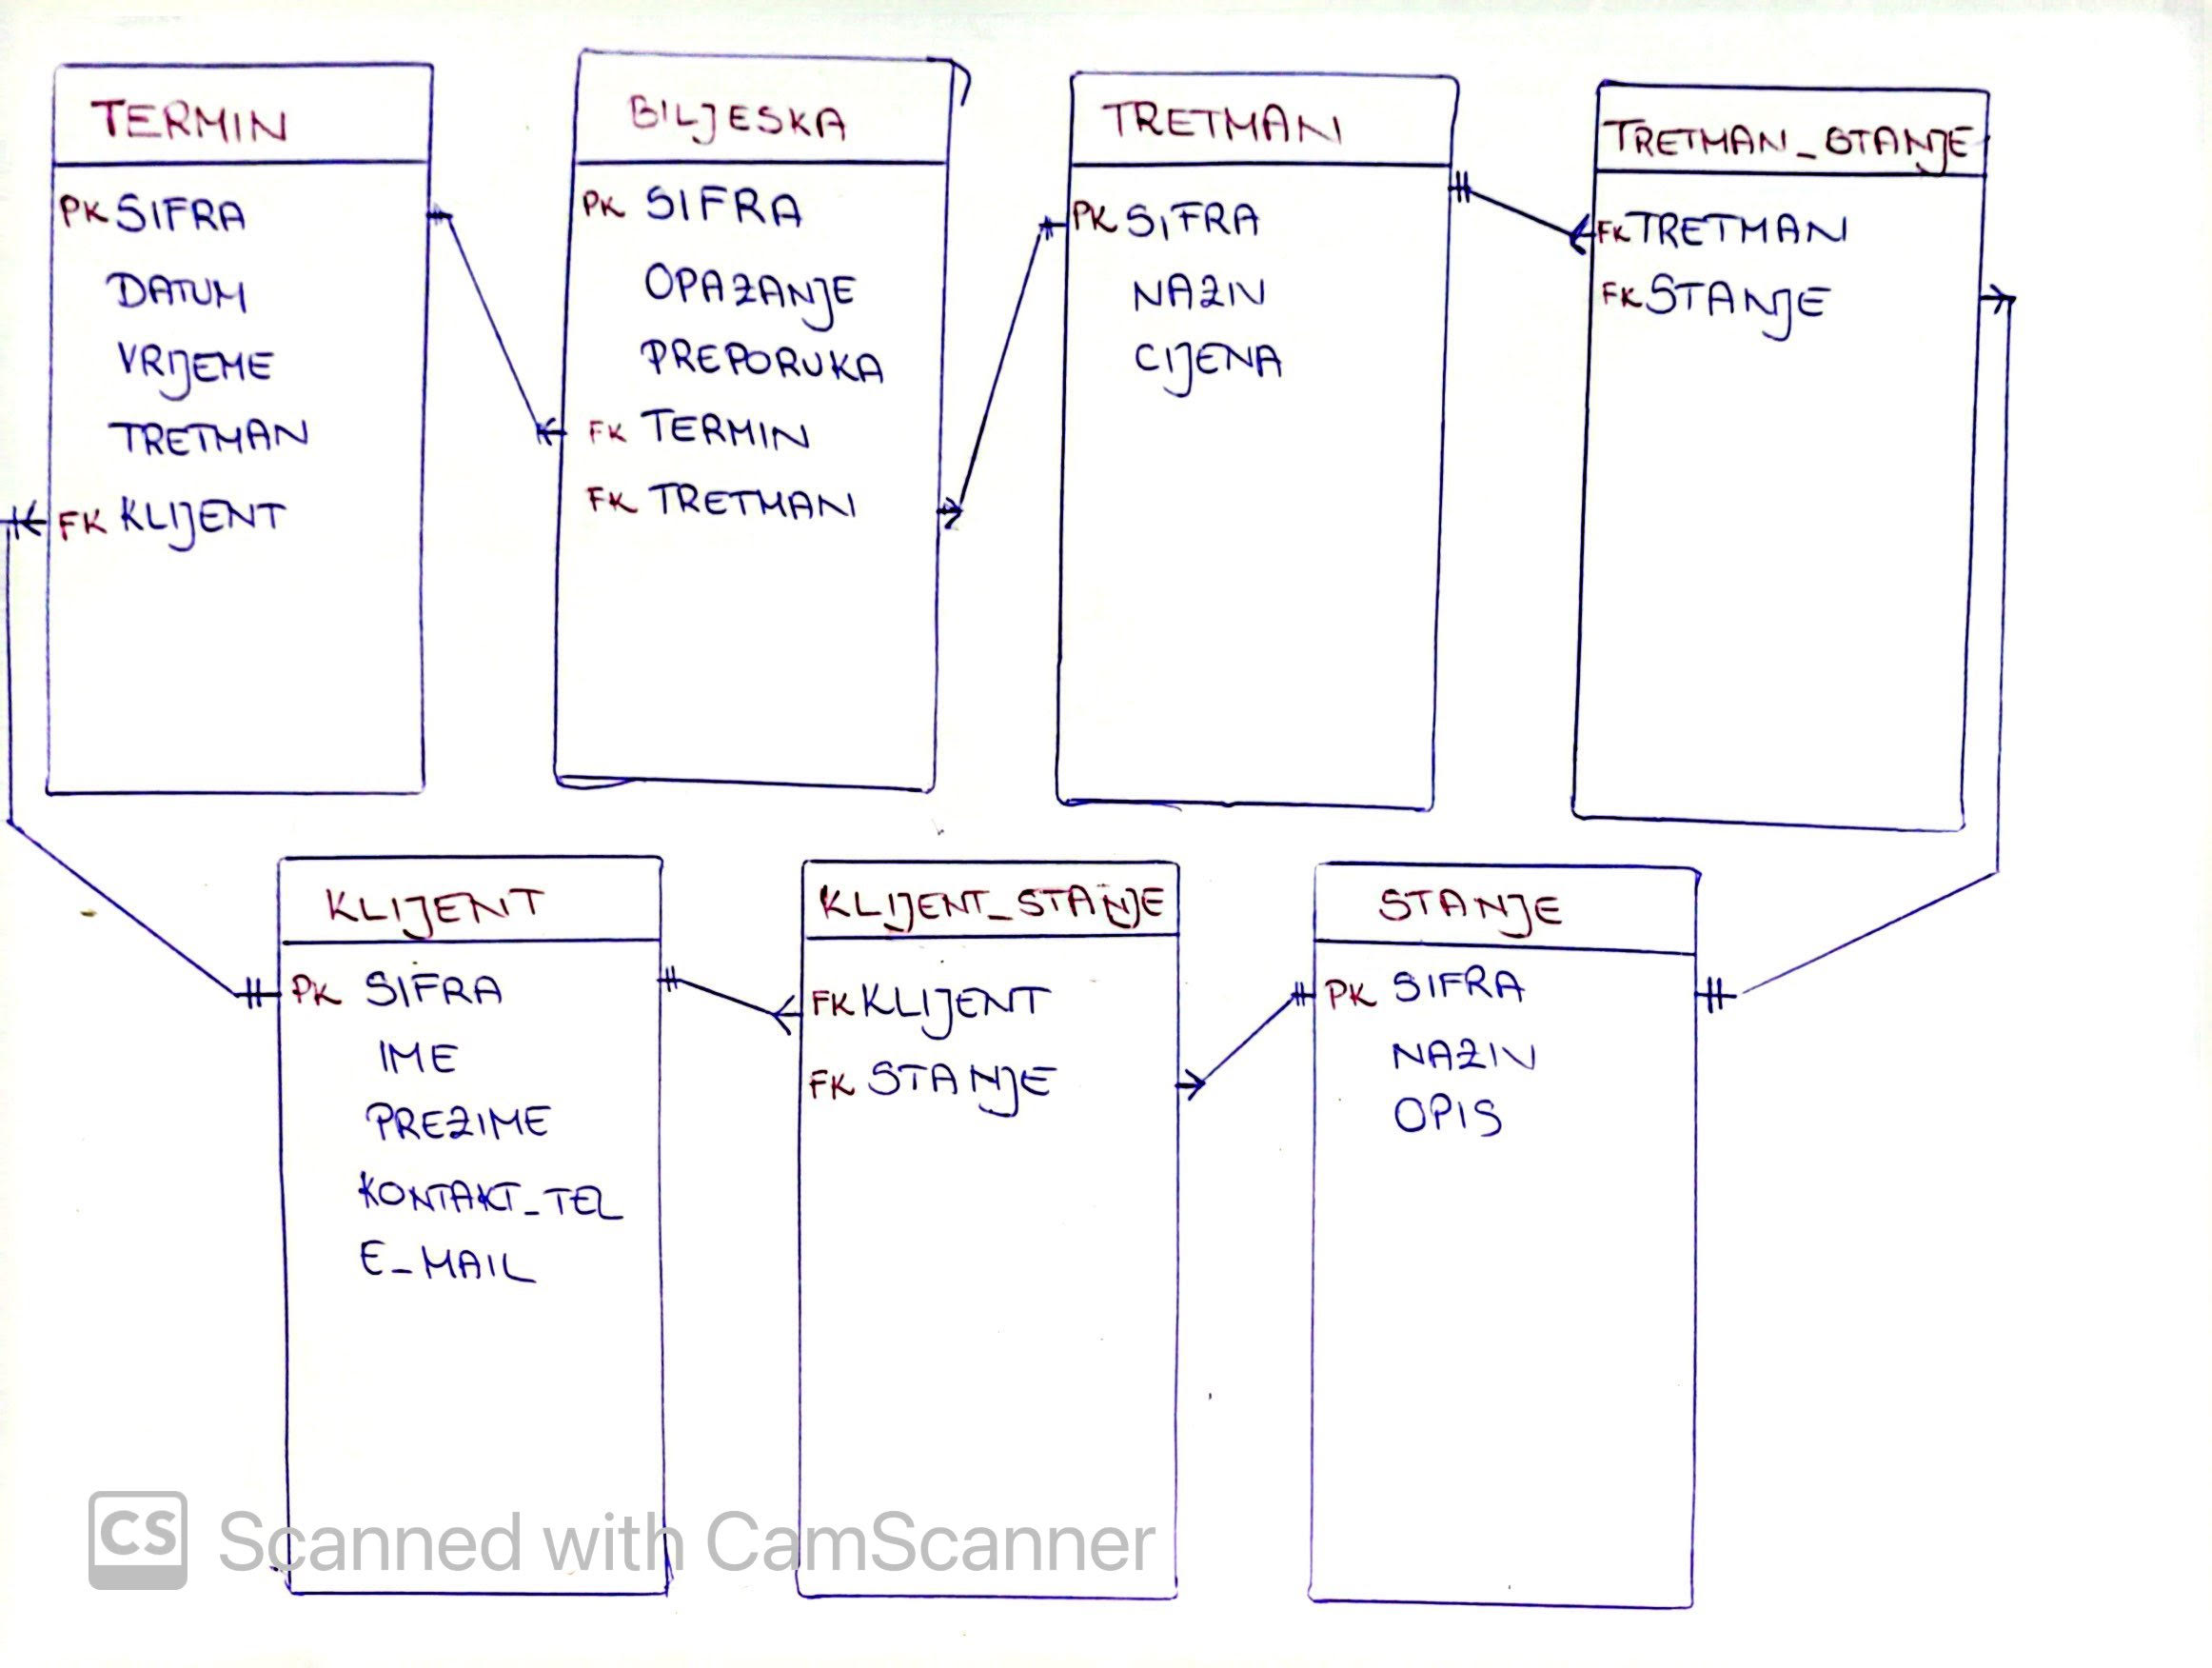 TERMIN
PK SIFRA
DATUM
VRIJEME
TRETMAN
FK KLIJENT
BILJESKA
PK SIFRA
OPAZANJE
PREPORUKA
FK TERMIN
FK TRETMAN
TRETMAN
PK SIFRA
NAZIV
CIJENA
TRETMAN_STANJE
FK TRETMAN
FK STANJE
KLIJENT
PK SIFRA
IME
PREZIME
KONTAKT_TEL
E_MAIL
KLIJENT_STANJE
FK KLIJENT
FK STANJE
STANJE
PK SIFRA
NAZIV
OPIS
CS Scanned with CamScanner